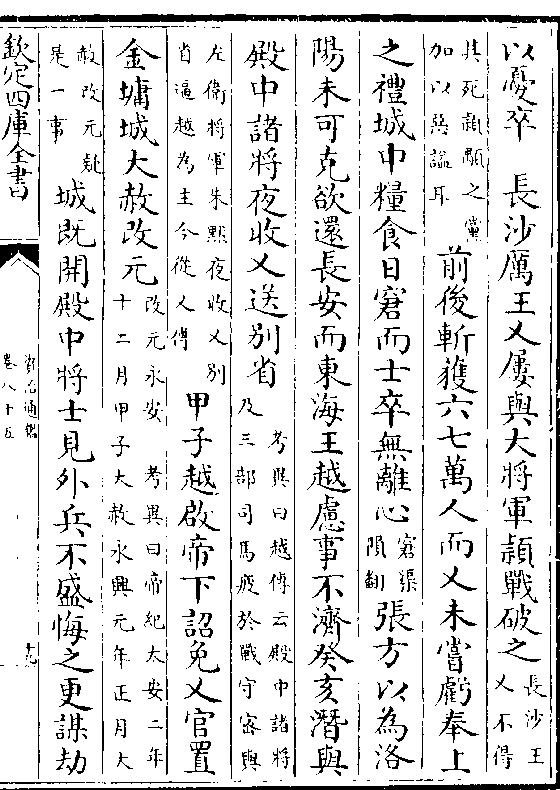 以憂卒　長沙厲王乂屢與大將軍穎戰破之長沙王乂不得
其死穎顒之黨加以惡諡耳前後斬獲六七萬人而乂未嘗虧奉上
之禮城中糧食日窘而士卒無離心窘渠隕翻張方以為洛
陽未可克欲還長安而東海王越慮事不濟癸亥潛與
殿中諸將夜收乂送别省考異曰越傳云殿中諸將及三部司馬疲於戰守密與
左衛將軍朱黙夜收乂别省逼越為主今從乂傳甲子越啟帝下詔免乂官置
金墉城大赦改元改元永安　考異曰帝紀太安二年十二月甲子大赦永興元年正月大
赦改元疑是一事城既開殿中將士見外兵不盛悔之更謀劫
欽定四庫全書
資治通鑑
卷八十五
十九